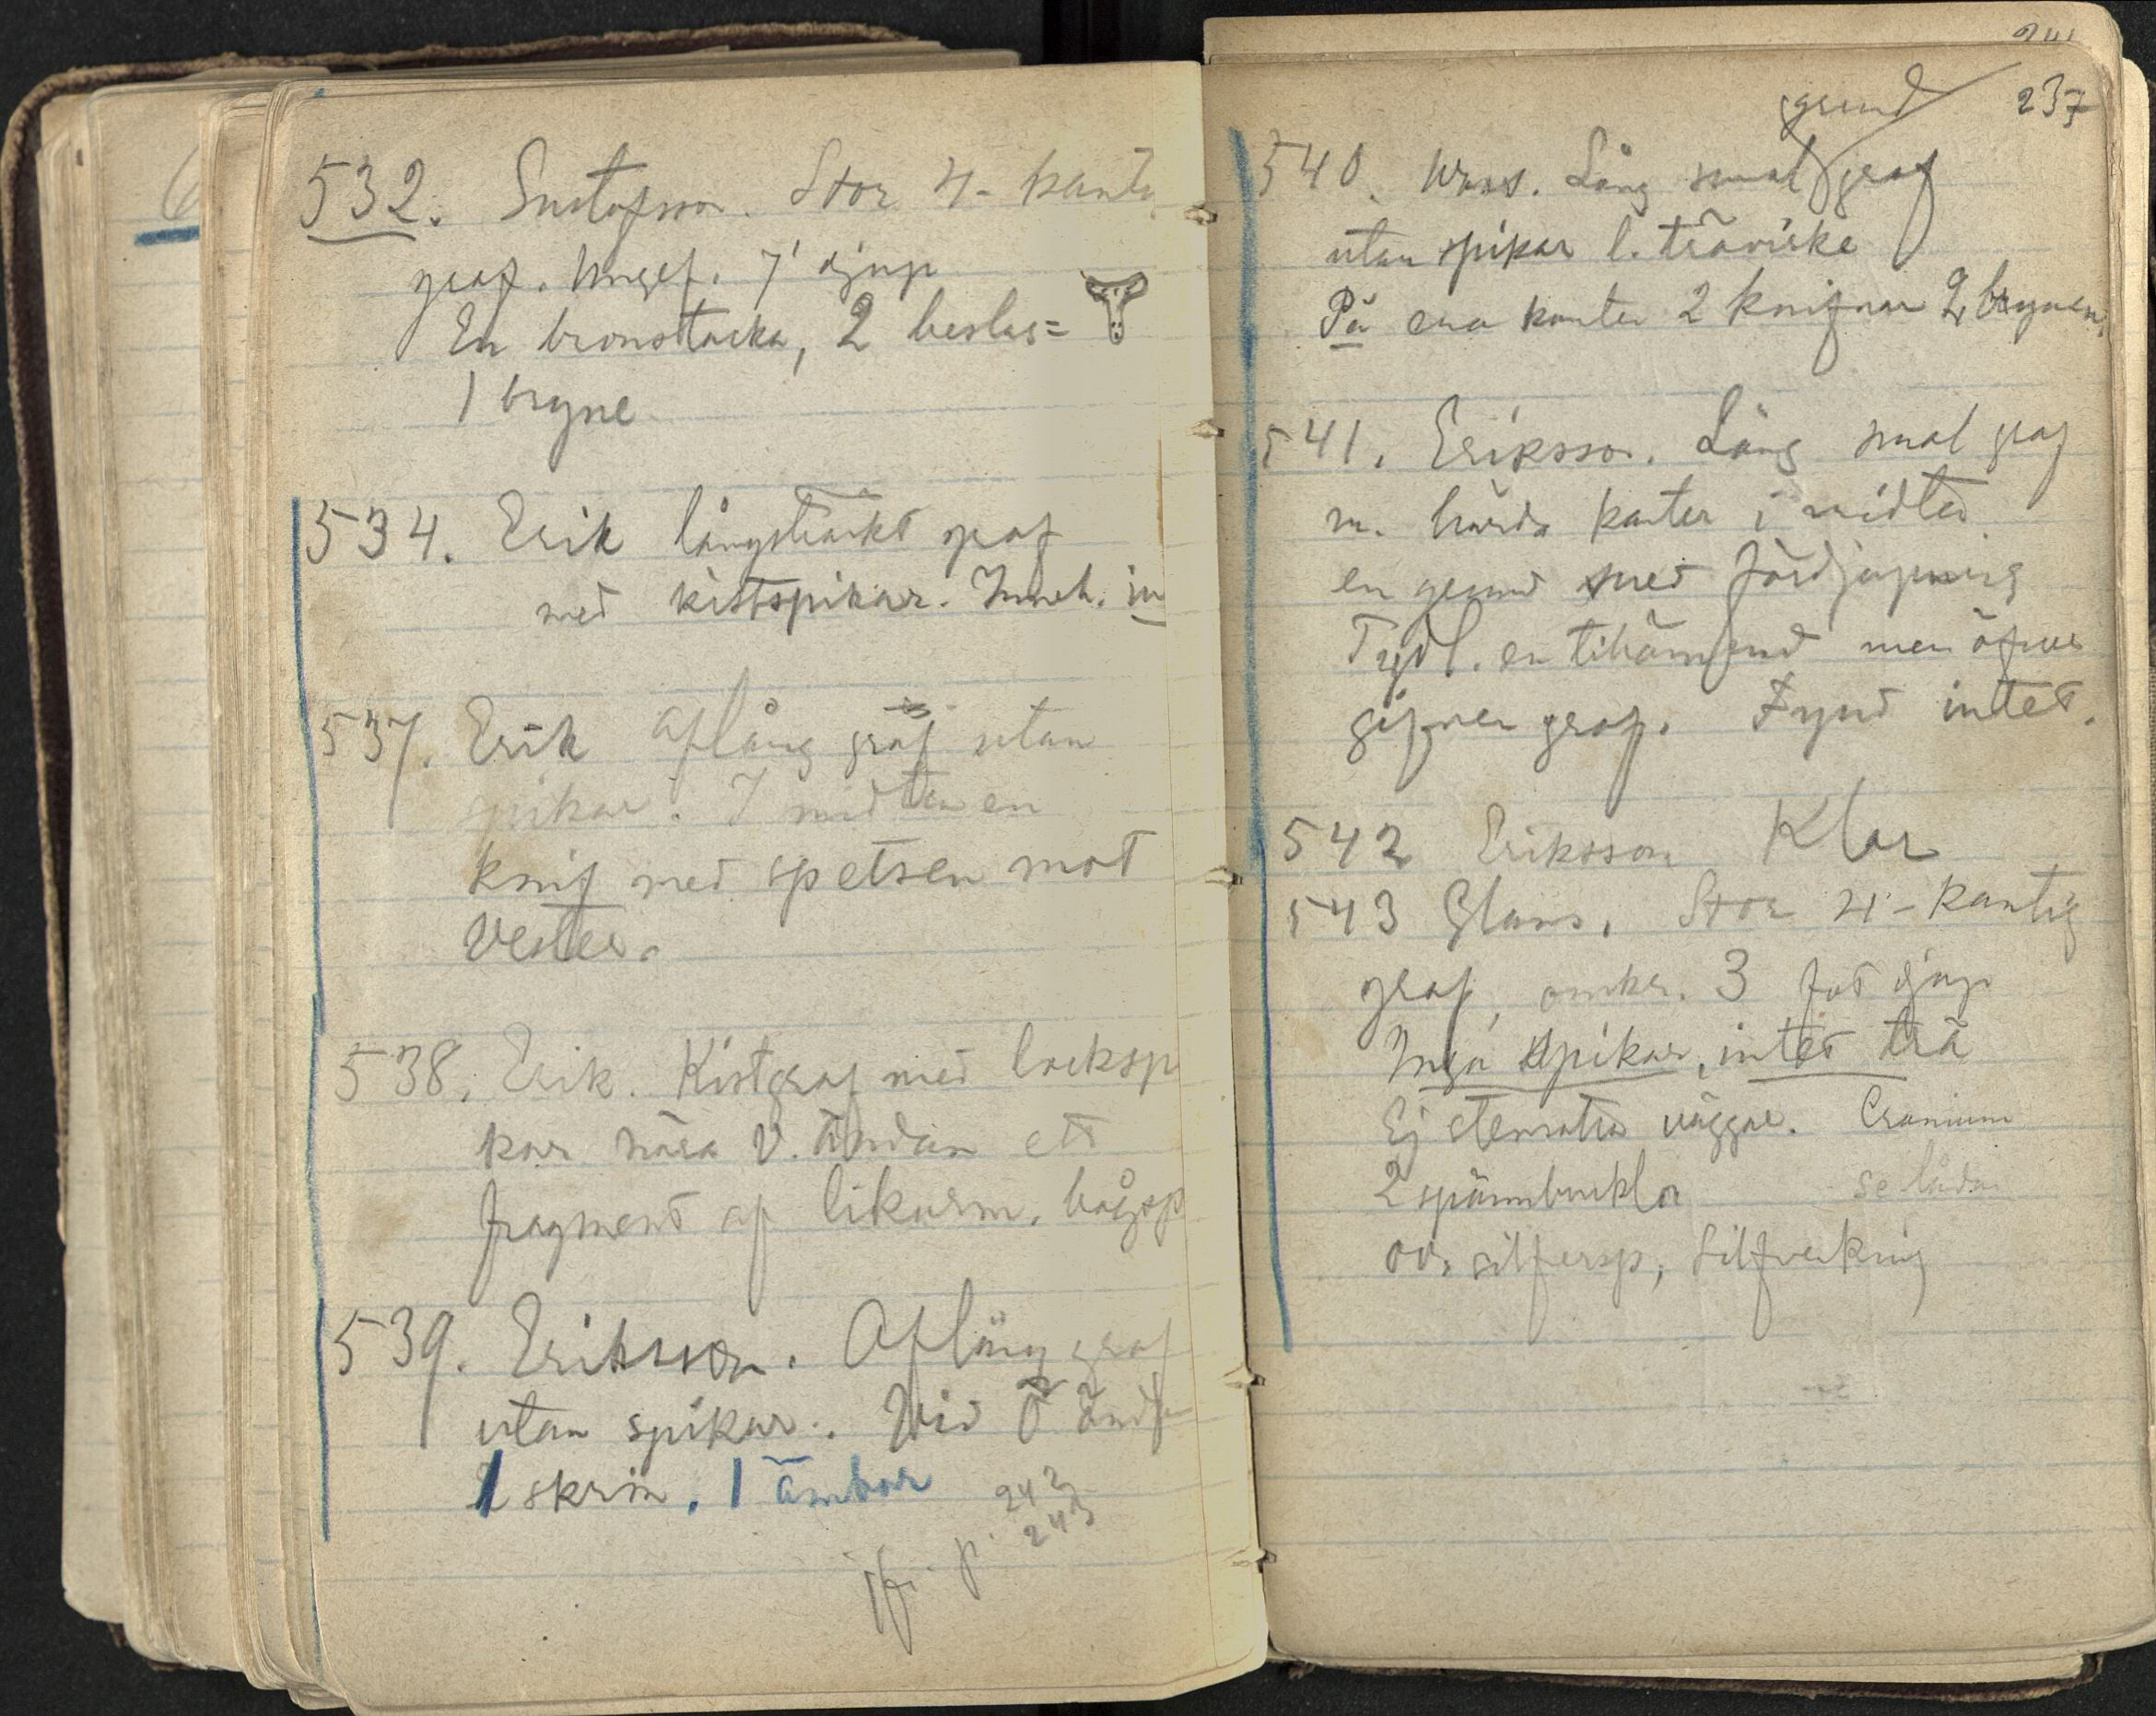 532. Gustafsson. Stor 4-kantig
graf. Ungef. 7' djup
En bronstacka, 2 beslag =
1 bryne
534. Erik långsträckt graf
med kistspikar. Inneh. in
537. Erik aflång graf utan
spikar. I midten en
knif med spetsen mot
vester.
538. Erik. Kistgraf med locksp
kar nära V. ändan ett
fragment af likarm. bågsp
539. Eriksson. Aflång graf
utan spikar. Wid Ö ändan
1 skrin, 1 ämbar
jfr p. 242
243
237
grund
540. Lång smal graf
utan spikar l. träviske
På ena kanten 2 knifvar 2 brynen.
541. Eriksson. Lång smal graf
m. hårda kanter i midten
en grund med fördjupning
Tydl. en tillämnad men öfver
gifven graf. Fynd intet.
542 Eriksson Klar
543 Glans. Stor 4-kantig
graf, omkr. 3 fot djup
Inga spikar, intet trä
Ej stensatta väggar. Cranium
2 spännbucklor se lådan
ov. silfversp, Silfverring